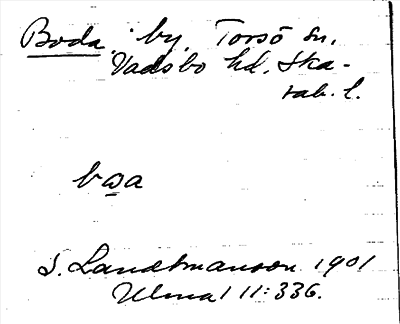 Boda by, Torsö sn,
Vadsbo hd, Ska-
rab. l.
bωa
S. Landtmanson 1901
Ulma 111:336.